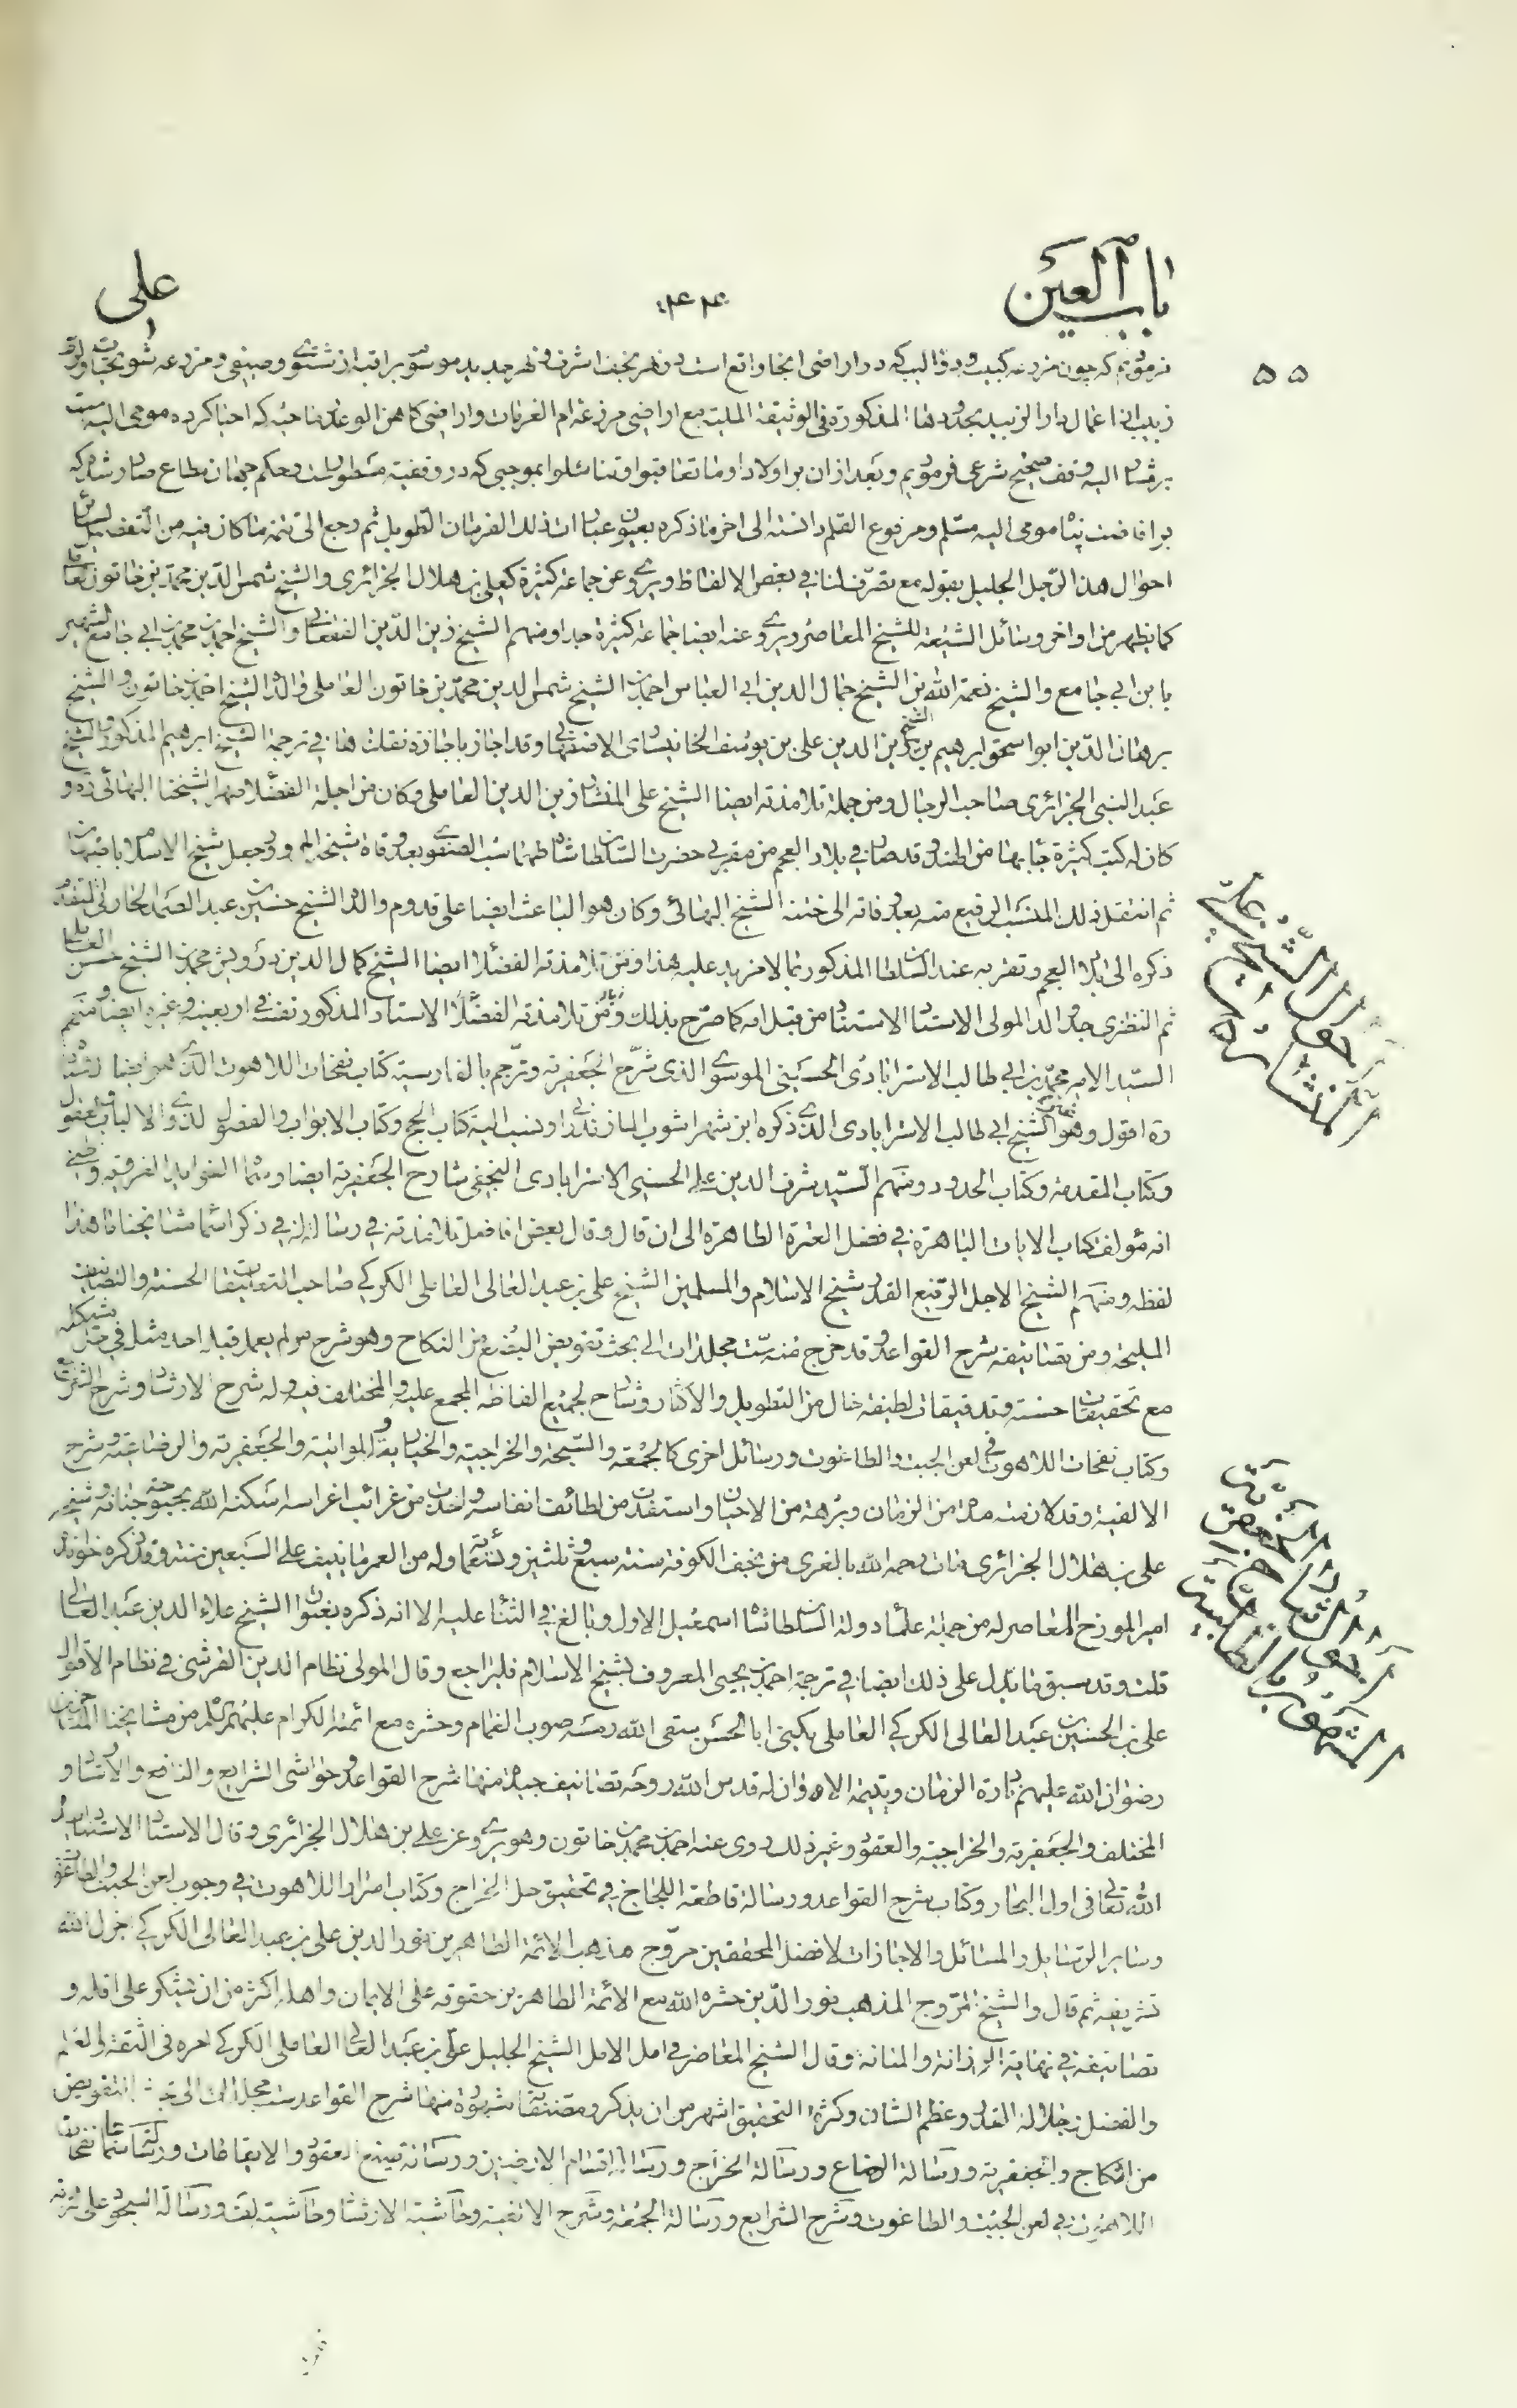 باب العین
علی
۵۵
فرمودیم که چون مزرعه کبیسه و دوالیب که در اراضی انجا واقع است ونهر نجف اشرف و نهر جدید موسوم براقبه از شتوی و صیفی و مزرعه شویحیات
زبید از اعمال دار الزبید بحدودها المذکورة فی الوثیقة الملیة مع اراضی مزرعه ام الغرفات واراضی کاهن الوعد صاحبه که احیا کرده مومی الیه است
بر مشار الیه وقف صحیح شرعی فرمودیم و بعد از ان بر اولاد او ما تعاقبوا و تناسلوا بموجبی که در وقفیه مسطور است وحکم جهان مطاع صادر شد که
مومی الیه مسلم و مرفوع القلم دانسته الی اخر ما ذکره بعیون عبارات ذلک الفرمان الطویل ثم رجع الی تتمة ما کان فیه من التفصیل لسائر
احوال هذا الرجل الجلیل بقوله مع تصرف لنا فی بعض الالفاظ ویروی عن جماعة کثیرة کعلی بن هلال الجزائری والشیخ شمس الدین محمد بن خاتون العاملی
کما یظهر من اواخر وسائل الشیعة للشیخ المعاصر ویروی عنه ایضا جماعة کثیرة جدا ومنهم الشیخ زین الدین الفقعانی والشیخ احمد بن محمد بن ابی جامع الشهیر
بابن ابی جامع والشیخ نعمة الله بن الشیخ جمال الدین ابی العباس احمد بن الشیخ شمس الدین محمد بن خاتون العاملی ووالده الشیخ احمد بن خاتون والشیخ
برهان الدین ابو اسحق ابرهیم بن الشیخ زین الدین علی بن یوسف الخانیساری الاصفهانی وقد اجازه باجازة نقلت ها فی ترجمة الشیخ ابرهیم المذکور والشیخ
عبد النبی الجزائری صاحب الرجال ومن جملة تلامذته ایضا الشیخ علی المنشار زین الدین العاملی وکان من اجلة الفضلاء صهرا لشیخنا البهائی ره و
کان له کتب کثیرة جاء بها من الهند وقد صار فی بلاد العجم من مقربی حضرت السلطان شاه طهماسب الصفوی بعد وفاة شیخه المروج وجعل شیخ الاسلام باصبهان
ثم انتقل ذلک المنصب الرفیع منه بعد وفاته الی ختنه الشیخ البهائی وکان هو الباعث ایضا علی قدوم والده الشیخ حسین بن عبد الصمد الحارثی المتقدم
ذکره الی بلاد العجم وتقربه عند السلطان المذکور بما لا مزید علیه هذا ومن تلامذته الفضلاء ایضا الشیخ کمال الدین درویش محمد بن الشیخ حسن العاملی
ثم النظری جد والد المولی الاستاد الاستناد من قبل امه کما صرح بذلک ومن تلامذته الفضلاء الاستاد المذکور نفسه فی اربعینه وغیره ایضا ومنهم
السید الامیر محمد بن ابی طالب الاسترابادی الحسینی الموسوی الذی شرح الجعفریة وترجم بالفارسیة کتاب نفحات اللاهوت الذی هو ایضا لاستاده
ره اقول وهو غیر الشیخ ابی طالب الاسترابادی الذی ذکره ابن شهراشوب المازندرانی ونسب الیه کتاب الحج وکتاب الابواب والفصول لذوی الالباب والعقول
وکتاب المقدمة وکتاب الحدود ومنهم السید شرف الدین علی الحسینی الاسترابادی النجفی شارح الجعفریة ایضا وسماه الفواید الغرویة وظنی
انه مؤلف کتاب الایات الباهرة فی فضل العترة الطاهرة الی ان قال وقال بعض افاضل تلامذته فی رسالة له فی ذکر اسماء مشایخنا ما هذا
لفظه ومنهم الشیخ الاجل الرفیع القدر شیخ الاسلام والمسلمین الشیخ علی بن عبد العالی العاملی الکرکی صاحب التعلیقات الحسنة والتصانیف
الملیحة ومن تصانیفه شرح القواعد وقد خرج منه ست مجلدات الی بحث تفویض البضع من النکاح وهو شرح لم یعمل قبله احد مثله فی حل مشکله
مع تحقیقات حسنة وتدقیقات لطیفة خال من التطویل والاکثار وشارح لجمیع الفاظه المجمع علیه والمختلف فیه وله شرح الارشاد وشرح الشرایع
وکتاب نفحات اللاهوت فی لعن الجبت والطاغوت ورسائل اخری کالجمعة والسبحة والخراجیة والخیاریة والمواتیة والجعفریة والرضاعیة وشرح
الالفیة وقد لازمته مدة من الزمان وبرهة من الاحیان واستفدت من لطائف انفاسه واخذت من غرائب اغراسه اسکنه الله بحبوحة جنانه وشیخه
علی بن هلال الجزائری مات رحمه الله بالغری من نجف الکوفة سنة سبع وثلثین وتسعمائة وله من العمر ما ینیف علی السبعین سنة وقد ذکره خواند
امیر المورخ المعاصر له من جملة علماء دولة السلطان شاه اسمعیل الاول وبالغ فی الثناء علیه الا انه ذکره بعنوان الشیخ علاء الدین عبد العالی
قلت وقد سبق ما یدل علی ذلک ایضا فی ترجمة احمد بن یحیی المعروف بشیخ الاسلام فلیراجع وقال المولی نظام الدین القرشی فی نظام الاقوال
علی بن الحسین بن عبد العالی الکرکی العاملی یکنی ابا الحسن سقی الله رمسه صوب الغمام وحشره مع ائمته الکرام علیهم السلام من مشایخنا المتاخرین
رضوان الله علیهم نادرة الزمان ویتیمة الاوان له قدس الله روحه تصانیف جیدة منها شرح القواعد وحواشی الشرایع والنافع والارشاد و
المختلف والجعفریة والخراجیة والعقود وغیر ذلک روی عنه احمد بن محمد بن خاتون وهو یروی عن علی بن هلال الجزائری وقال الاستاد الاستناد ایده
الله تعالی فی اول البحار وکتاب شرح القواعد ورسالة قاطعة اللجاج فی تحقیق حل الخراج وکتاب اسرار اللاهوت فی وجوب لعن الجبت والطاغوت
وسایر الرسایل والمسائل والاجازات لافضل المحققین مروج مذهب الائمة الطاهرین نور الدین علی بن عبد العالی الکرکی اجزل الله
تشریفه ثم قال والشیخ المروج المذهب نور الدین حشره الله مع الائمة الطاهرین حقوقه علی الایمان واهله اکثر من ان یشکر علی اقله و
تصانیفه فی نهایة الرزانة والمتانة وقال الشیخ المعاصر فی امل الامل الشیخ الجلیل علی بن عبد العالی العاملی الکرکی امره فی الثقة والعلم
والفضل وجلالة القدر وعظم الشان وکثرة التحقیق اشهر من ان یذکر ومصنفاته مشهورة منها شرح القواعد ست مجلدات الی بحث التفویض
من النکاح والجعفریة ورسالة الرضاع ورسالة الخراج ورسالة اقسام الارضین ورسالة صیغ العقود والایقاعات ورسالة سماها نفحات
اللاهوت فی لعن الجبت والطاغوت وشرح الشرایع ورسالة الجمعة وشرح الالفیة وحاشیة الارشاد وحاشیة المختلف ورسالة السجود علی التربة